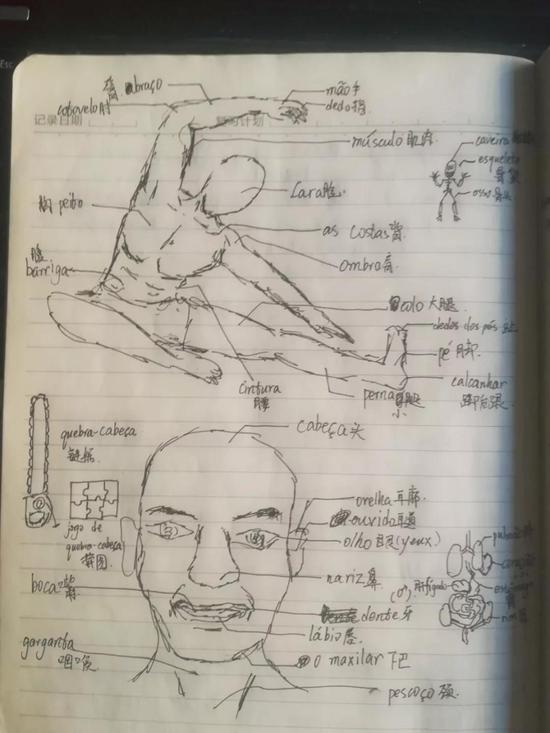 abraço
cotovelo 肘
mão 手
dedo 指
记录日期
músculo 肌肉
caveira
esqueleto
osso 骨头
cara 脸
胸 peito
as costas 背
ombro 肩
barriga
colo 大腿
dedos dos pés
pé 脚
calcanhar
脚后跟
cintura
腰
perna 小腿
quebra-cabeça
jogo de
quebra-cabeça
拼图
cabeça 头
orelha 耳廓
ouvido 耳道
olho 眼 (yeux)
nariz 鼻
boca 嘴
dente 牙
lábio 唇
garganta
咽喉
o maxilar 下巴
pescoço 颈
(o) 肝 fígado
pulmão 肺
coração